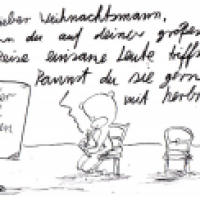 ieber Weihnachtsmann,
nn du auf deiner großen
Reise einsame Leute triffs
kannst du sie gern
mit herbr
der
en